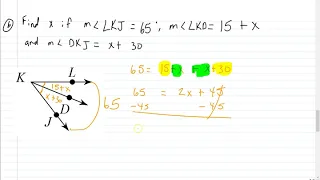 b Find x if m∠LKJ = 65°, m∠LKD = 15 + x
and m∠DKJ = x + 30
65 = 15 + x + x + 30
K
L
15+x
x+30
D
J
65
65 = 2x + 45
-45 - 45